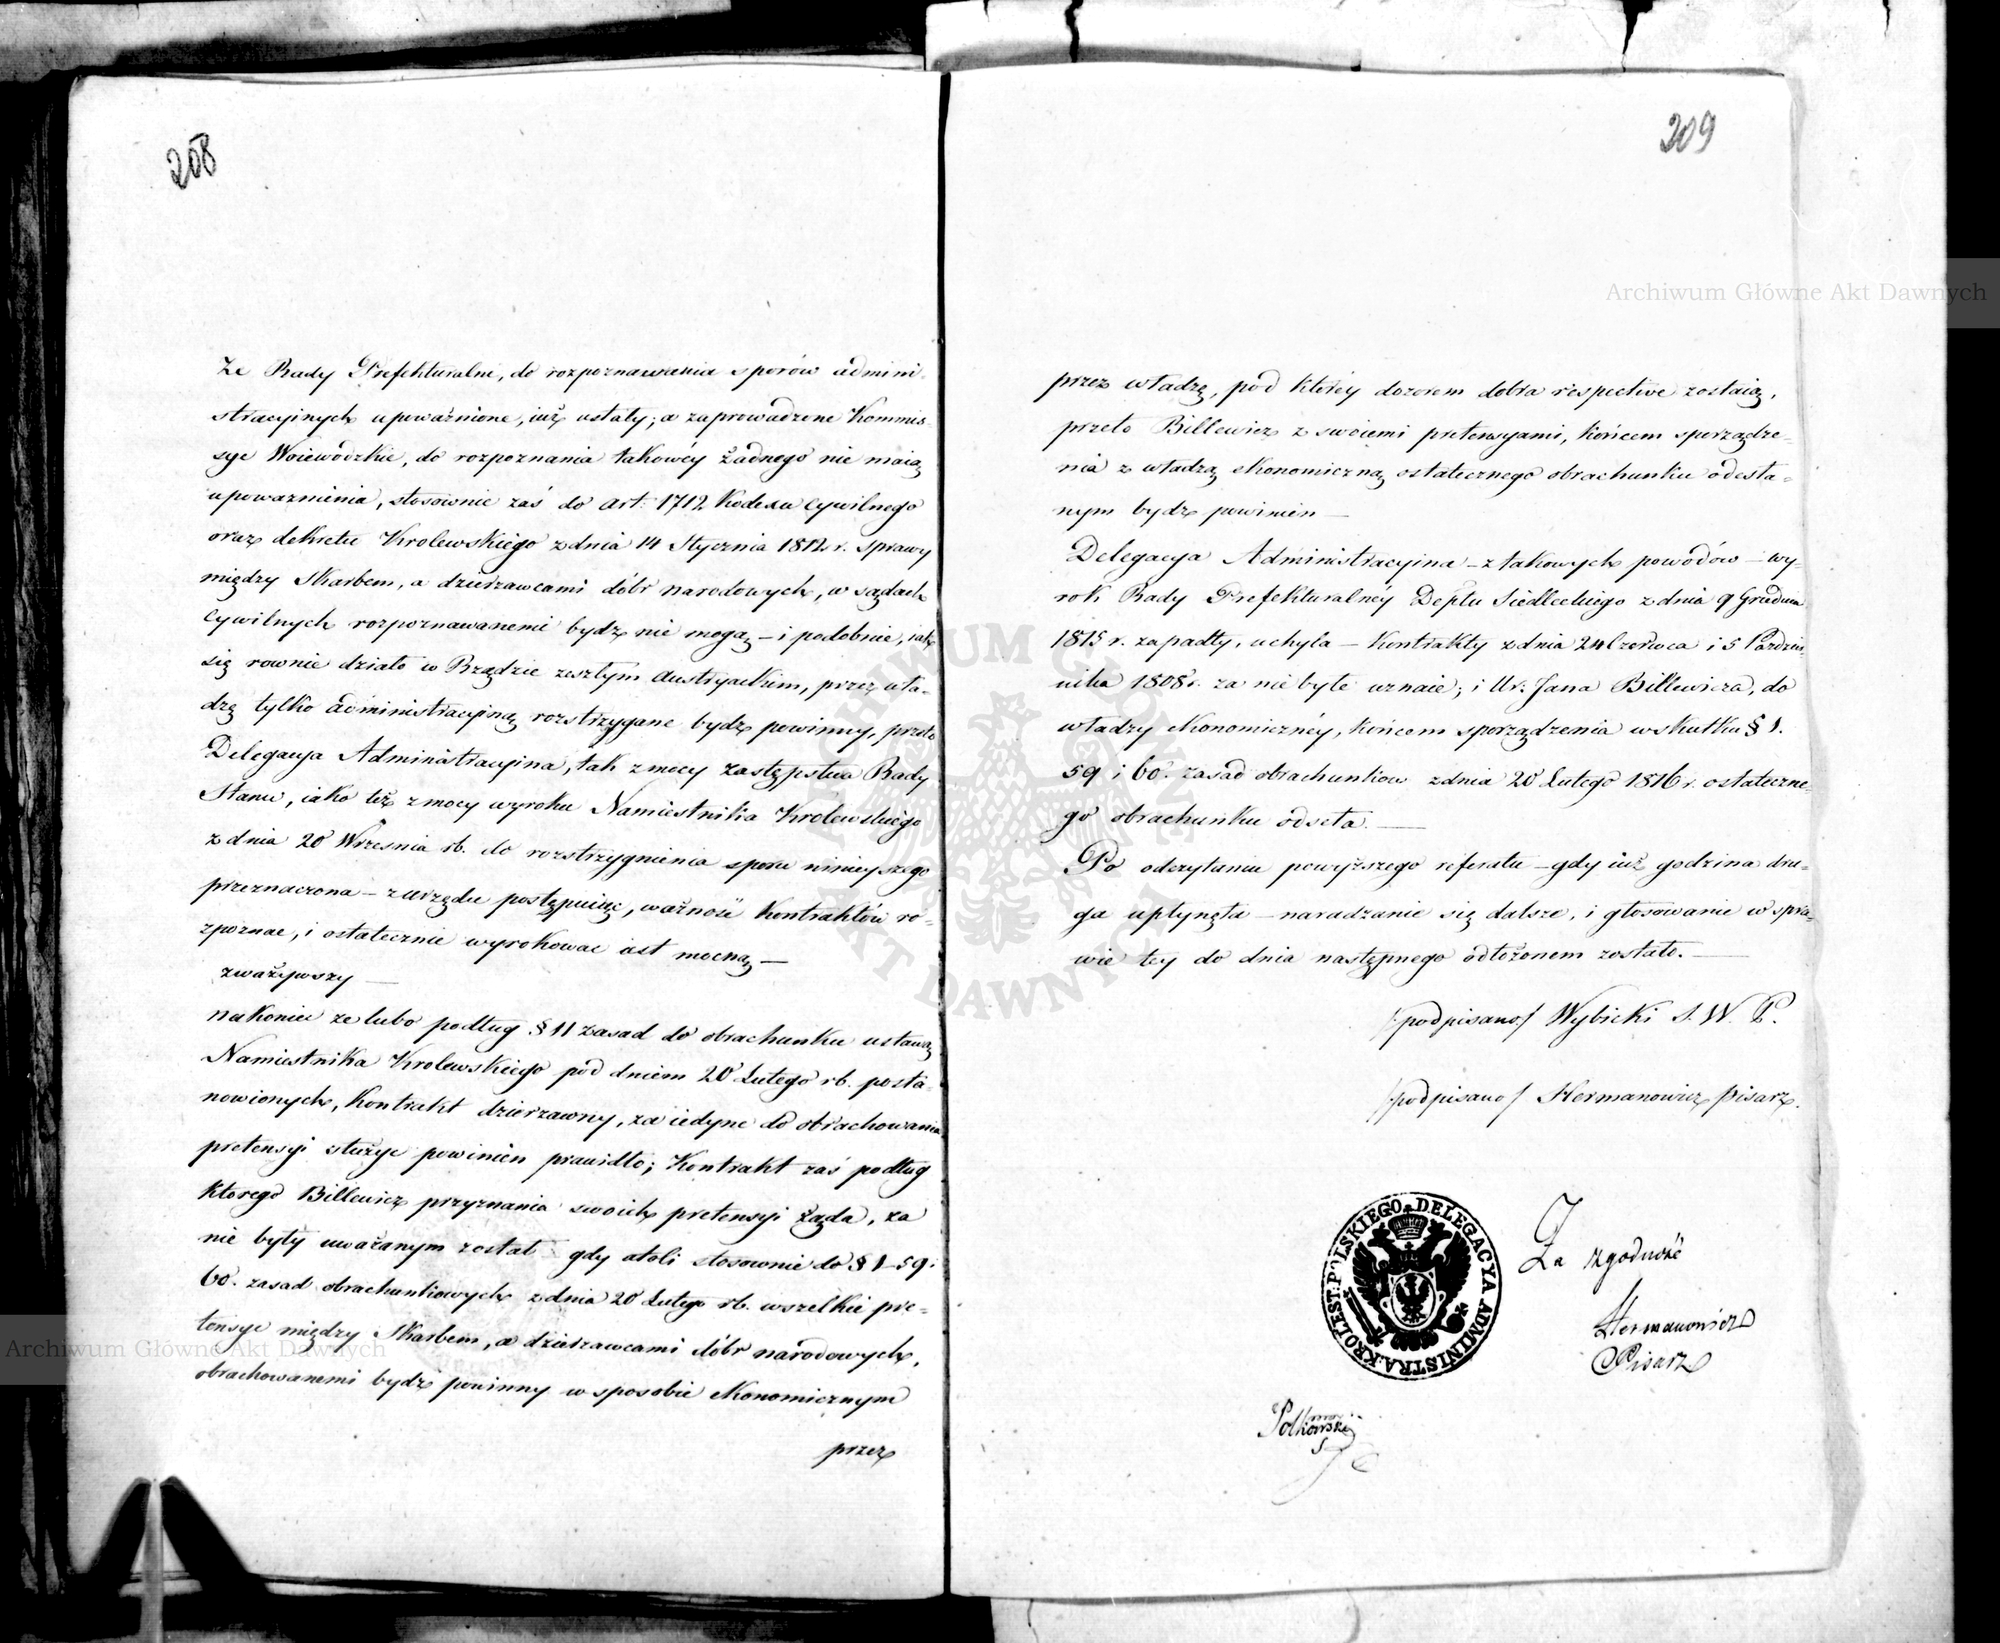 208
Że Rady Prefekturalne, do rozpoznawania sporów admini-
stracyinych upoważnione, iuż ustały; a zaprowadzone Kommis-
sye Woiewódzkie, do rozpoznania takowéy żadnego nie maią
upoważnienia, stosownie zaś do art: 1712 Kodexu cywilnego
oraz dekretu Krolewskiego z dnia 14 Stycznia 1812 r. sprawy
między Skarbem, a dzierzawcami dóbr narodowych, w sądach
cywilnych rozpoznawanemi bydz nie mogą – i podobnie, iak
się rownie działo w Rządzie zeszłym Austryackim, przez wła-
dzę tylko administracyiną rozstrzygane bydz powinny, przeto
Delegacya Administracyina, tak z mocy zastępstwa Rady
Stanu, iako też z mocy wyroku Namiestnika Krolewskiego
z dnia 20 Wrzesnia rb. do rozstrzygnienia sporu ninieyszego
przeznaczona – z urzędu postępuiąc, ważność Kontraktów ro-
zpoznac, i ostatecznie wyrokowac iest mocną —
zważywszy —
nakoniec ze lubo podług § 11 zasad do obrachunku ustawą
Namiestnika Krolewskiego pod dniem 20 Lutego rb. posta-
nowionych, Kontrakt dzierzawny, za iedyne do obrachowania
pretensyi służyc powinien prawidło; Kontrakt zaś podług
ktorego Billewicz przyznania swoich pretensyi żąda, za
nie były uważanym został gdy atoli stosownie do § 1-59 i
60. zasad obrachunkowych z dnia 20 Lutego rb. wszelkie pre-
tensye między Skarbem, a dzierzawcami dóbr narodowych,
obrachowanemi bydź powinny w sposobie ekonomicznym
przez
209
przez władzę, pod któréy dozorem dobra respective zostaią,
przeto Billewicz z swoiemi pretensyami, końcem sporządze-
nia z władzą ekonomiczną ostatecznego obrachunku odesła-
nym bydz powinien —
Delegacya Administracyina – z takowych powodów – wy-
rok Rady Prefekturalnéy Deptu Siedleckiego z dnia 9 Grudnia
1815 r. zapadły, uchyla – Kontrakty z dnia 24 Czerwca i 5 Paździer-
nika 1808 r. za niebyłe uznaie; i Ur. Jana Billewicza, do
władzy ekonomicznéy, końcem sporządzenia w skutku § 1.
59 i 60. zasad obrachunkow z dnia 20 Lutego 1816 r. ostateczne-
go obrachunku odseła. —
Po odczytaniu powyższego referatu – gdy iuż godzina dru-
ga upłynęła – naradzanie się dalsze, i głosowanie w spra-
wie tey do dnia następnego odłożonem zostało. —
/:podpisano:/ Wybicki S. W. P.
/:podpisano:/ Hermanowicz Pisarz.
KROLEST: POLSKIEGO DELEGACYA ADMINISTRA:
Za zgodność
Hermanowicz
Pisarz
Polkowski
Archiwum Główne Akt Dawnych
Archiwum Główne Akt Dawnych
ARCHIWUM GŁÓWNE
AKT DAWNYCH